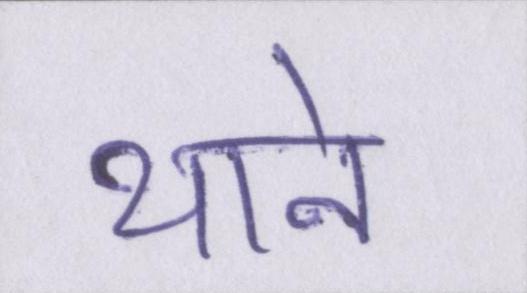 थाने